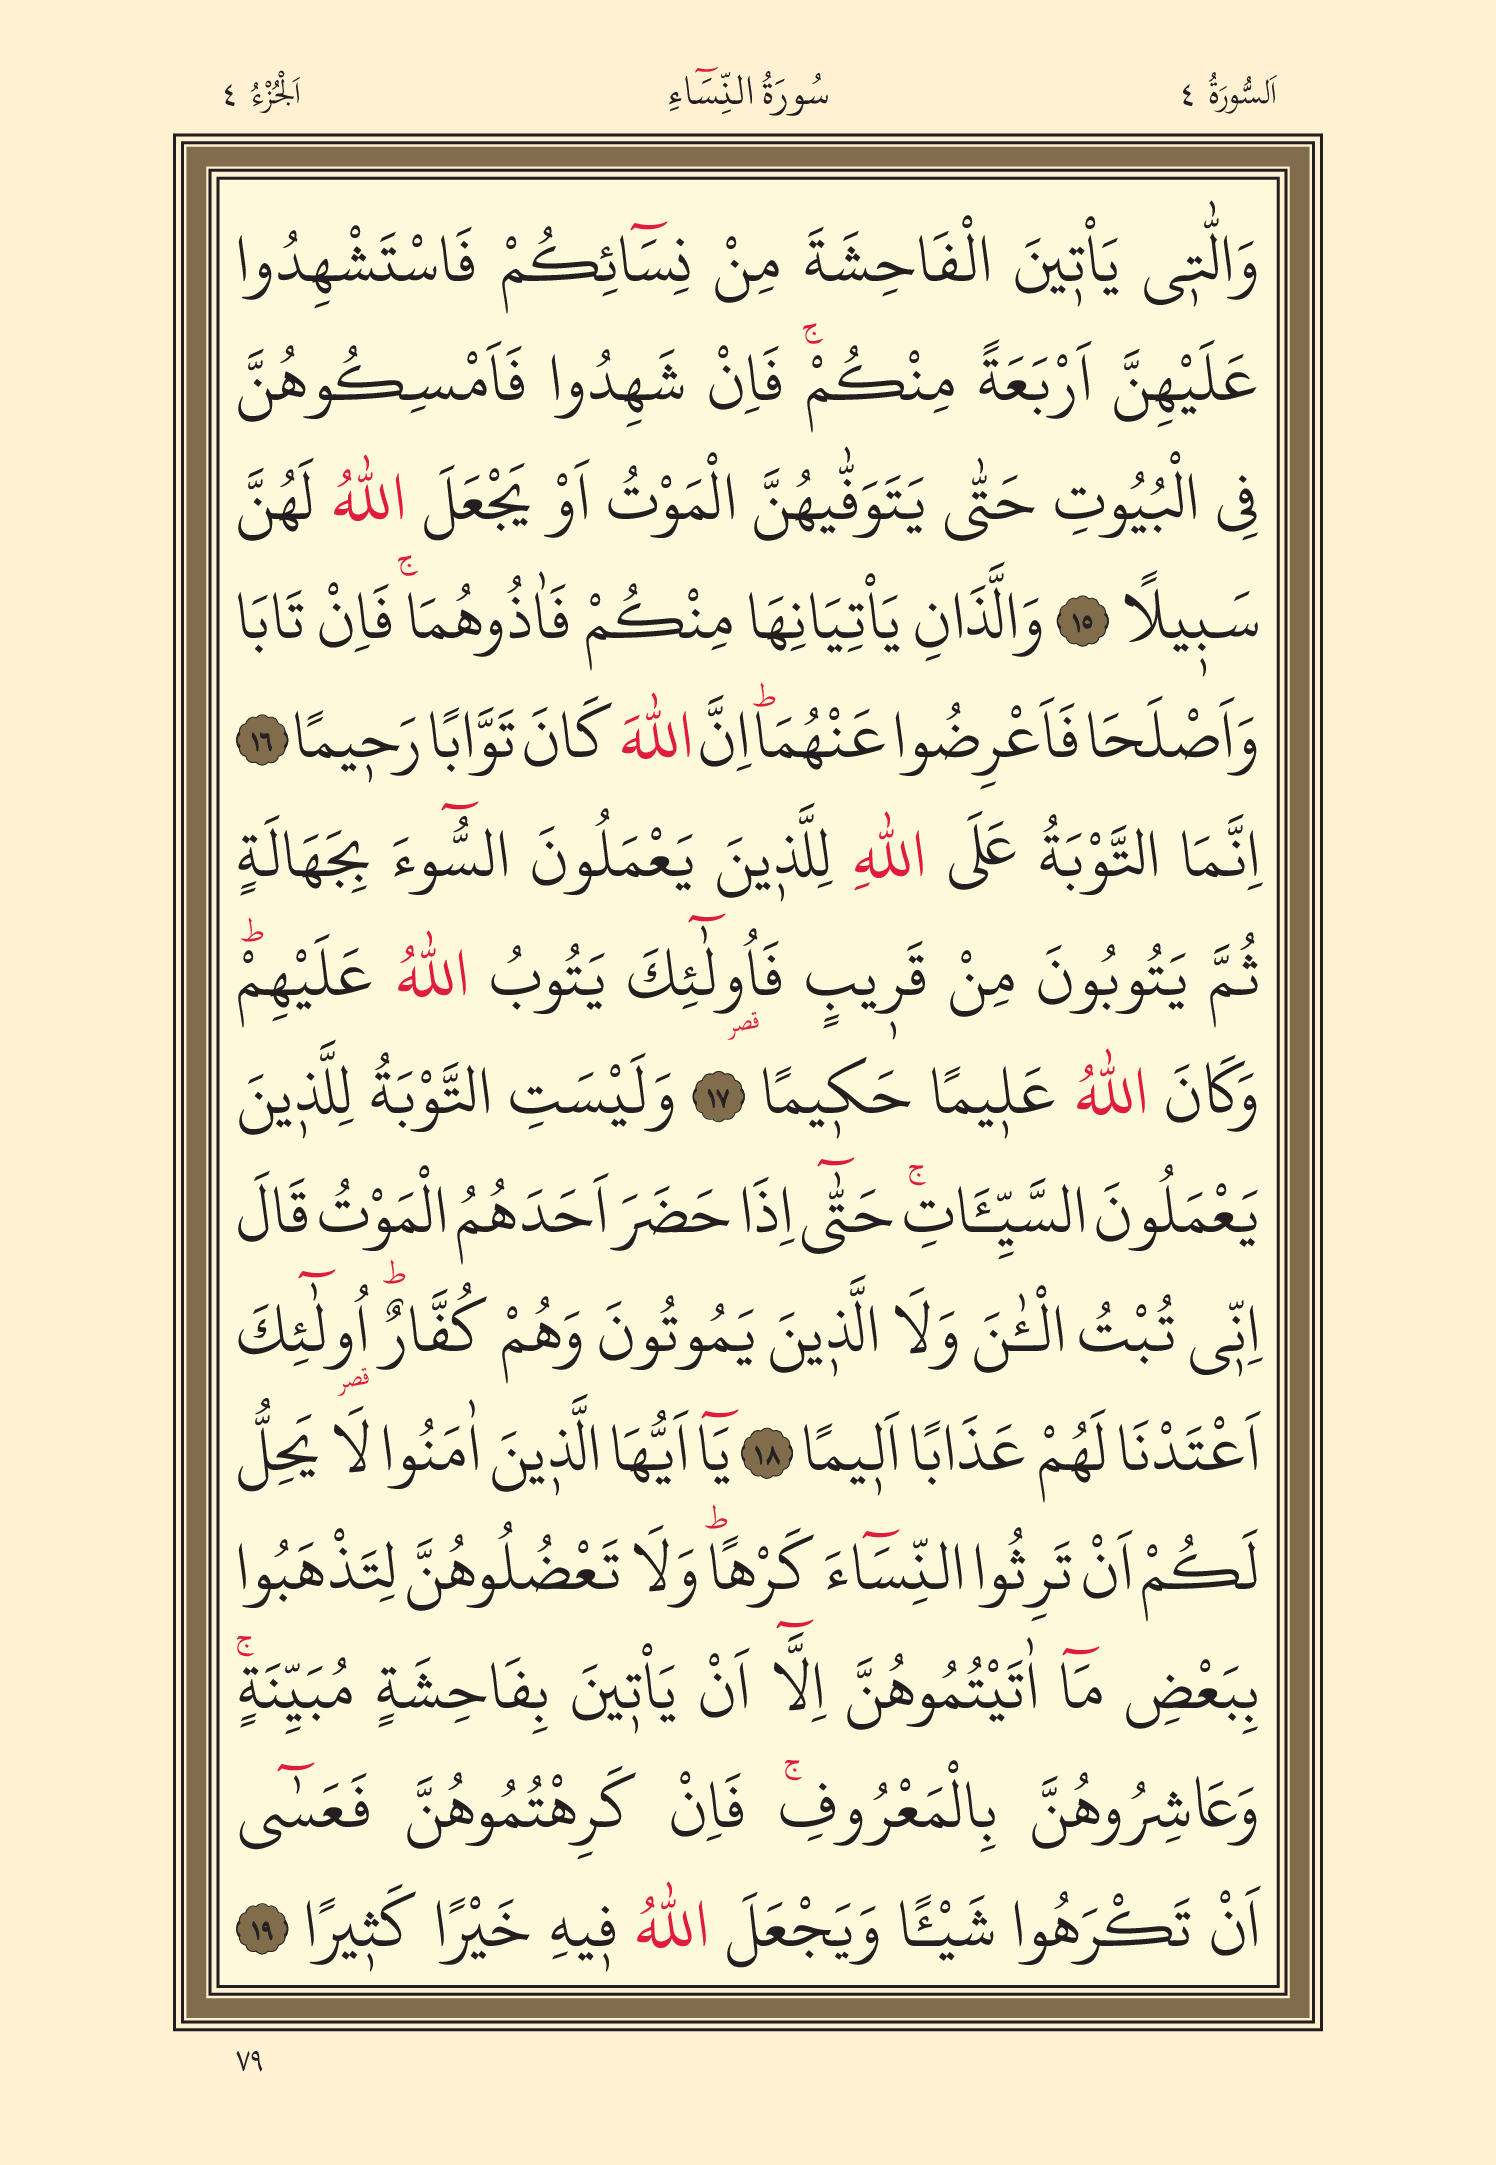 اَلسُّورَةُ ٤ سُورَةُ النِّسَٓاءِ اَلْجُزْءُ ٤
وَالّٰت۪ى يَأْت۪ينَ الْفَاحِشَةَ مِنْ نِسَٓائِكُمْ فَاسْتَشْهِدُوا
عَلَيْهِنَّ اَرْبَعَةً مِنْكُمْۚ فَاِنْ شَهِدُوا فَاَمْسِكُوهُنَّ
فِى الْبُيُوتِ حَتّٰى يَتَوَفّٰيهُنَّ الْمَوْتُ اَوْ يَجْعَلَ اللّٰهُ لَهُنَّ
سَب۪يلًا ١٥ وَالَّذَانِ يَأْتِيَانِهَا مِنْكُمْ فَاٰذُوهُمَاۚ فَاِنْ تَابَا
وَاَصْلَحَا فَاَعْرِضُوا عَنْهُمَاۜ اِنَّ اللّٰهَ كَانَ تَوَّابًا رَح۪يمًا ١٦
اِنَّمَا التَّوْبَةُ عَلَى اللّٰهِ لِلَّذ۪ينَ يَعْمَلُونَ السُّٓوءَ بِجَهَالَةٍ
ثُمَّ يَتُوبُونَ مِنْ قَر۪يبٍ فَاُولٰٓئِكَ يَتُوبُ اللّٰهُ عَلَيْهِمْۜ
قصر
وَكَانَ اللّٰهُ عَل۪يمًا حَك۪يمًا ١٧ وَلَيْسَتِ التَّوْبَةُ لِلَّذ۪ينَ
يَعْمَلُونَ السَّيِّـَٔاتِۚ حَتّٰٓى اِذَا حَضَرَ اَحَدَهُمُ الْمَوْتُ قَالَ
اِنّ۪ى تُبْتُ الْـٰٔنَ وَلَا الَّذ۪ينَ يَمُوتُونَ وَهُمْ كُفَّارٌۜ اُولٰٓئِكَ
قصر
اَعْتَدْنَا لَهُمْ عَذَابًا اَل۪يمًا ١٨ يَٓا اَيُّهَا الَّذ۪ينَ اٰمَنُوا لَا يَحِلُّ
لَكُمْ اَنْ تَرِثُوا النِّسَٓاءَ كَرْهًاۜ وَلَا تَعْضُلُوهُنَّ لِتَذْهَبُوا
بِبَعْضِ مَٓا اٰتَيْتُمُوهُنَّ اِلَّٓا اَنْ يَأْت۪ينَ بِفَاحِشَةٍ مُبَيِّنَةٍۚ
وَعَاشِرُوهُنَّ بِالْمَعْرُوفِۚ فَاِنْ كَرِهْتُمُوهُنَّ فَعَسٰٓى
اَنْ تَكْرَهُوا شَيْـًٔا وَيَجْعَلَ اللّٰهُ ف۪يهِ خَيْرًا كَث۪يرًا ١٩
٧٩